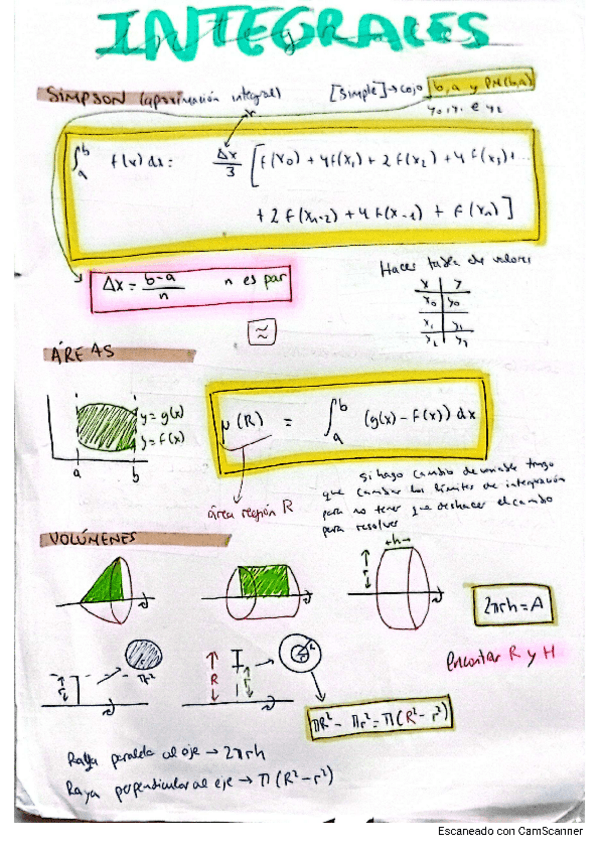 INTEGRALES
SIMPSON (aproximación integral) [Simple] → cojo b, a y PM(b,a)
y₀, y₁ e y₂
∫ₐᵇ f(x) dx = Δx/3 [f(x₀) + 4f(x₁) + 2f(x₂) + 4f(x₃) + ...
+ 2f(xₙ₋₂) + 4f(x₋₁) + f(xₙ)]
Δx = b-a/n n es par
Hacer tabla de valores
x y
x₀ y₀
x₁ y₁
≈
ÁREAS
y = g(x)
y = f(x)
a b
μ(R) = ∫ₐᵇ (g(x) - f(x)) dx
área región R
Si hago cambio de variable tengo
que cambiar los límites de integración
para no tener que deshacer el cambio
para resolver
VOLÚMENES
h
r
2πrh = A
Encontrar R y H
r
πr²
R
r
πR² - πr² = π(R² - r²)
Raya paralela al eje → 2πrh
Raya perpendicular al eje → π(R² - r²)
Escaneado con CamScanner